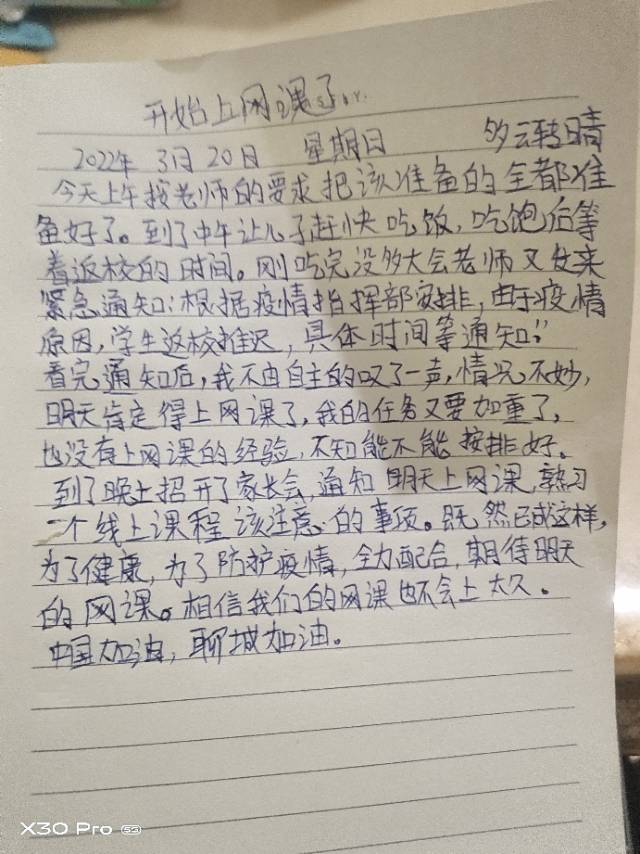 开始上网课了
2022年 3月 20日 星期日 多云转晴
今天上午按老师的要求把该准备的全都准
备好了。到了中午让儿子赶快吃饭，吃饱后等
着返校的时间。刚吃完没多大会老师又发来
紧急通知：根据疫情指挥部安排，由于疫情
原因，学生返校推迟，具体时间等通知。"
看完通知后，我不由自主的叹了一声，情况不妙，
明天肯定得上网课了，我的任务又要加重了，
也没有上网课的经验，不知能不能按排好。
到了晚上招开了家长会，通知明天上网课，熟习
一个线上课程该注意的事项。既然已成这样，
为了健康，为了防护疫情，全力配合，期待明天
的网课。相信我们的网课也不会上太久。
中国加油，聊城加油。
X30 Pro 5G